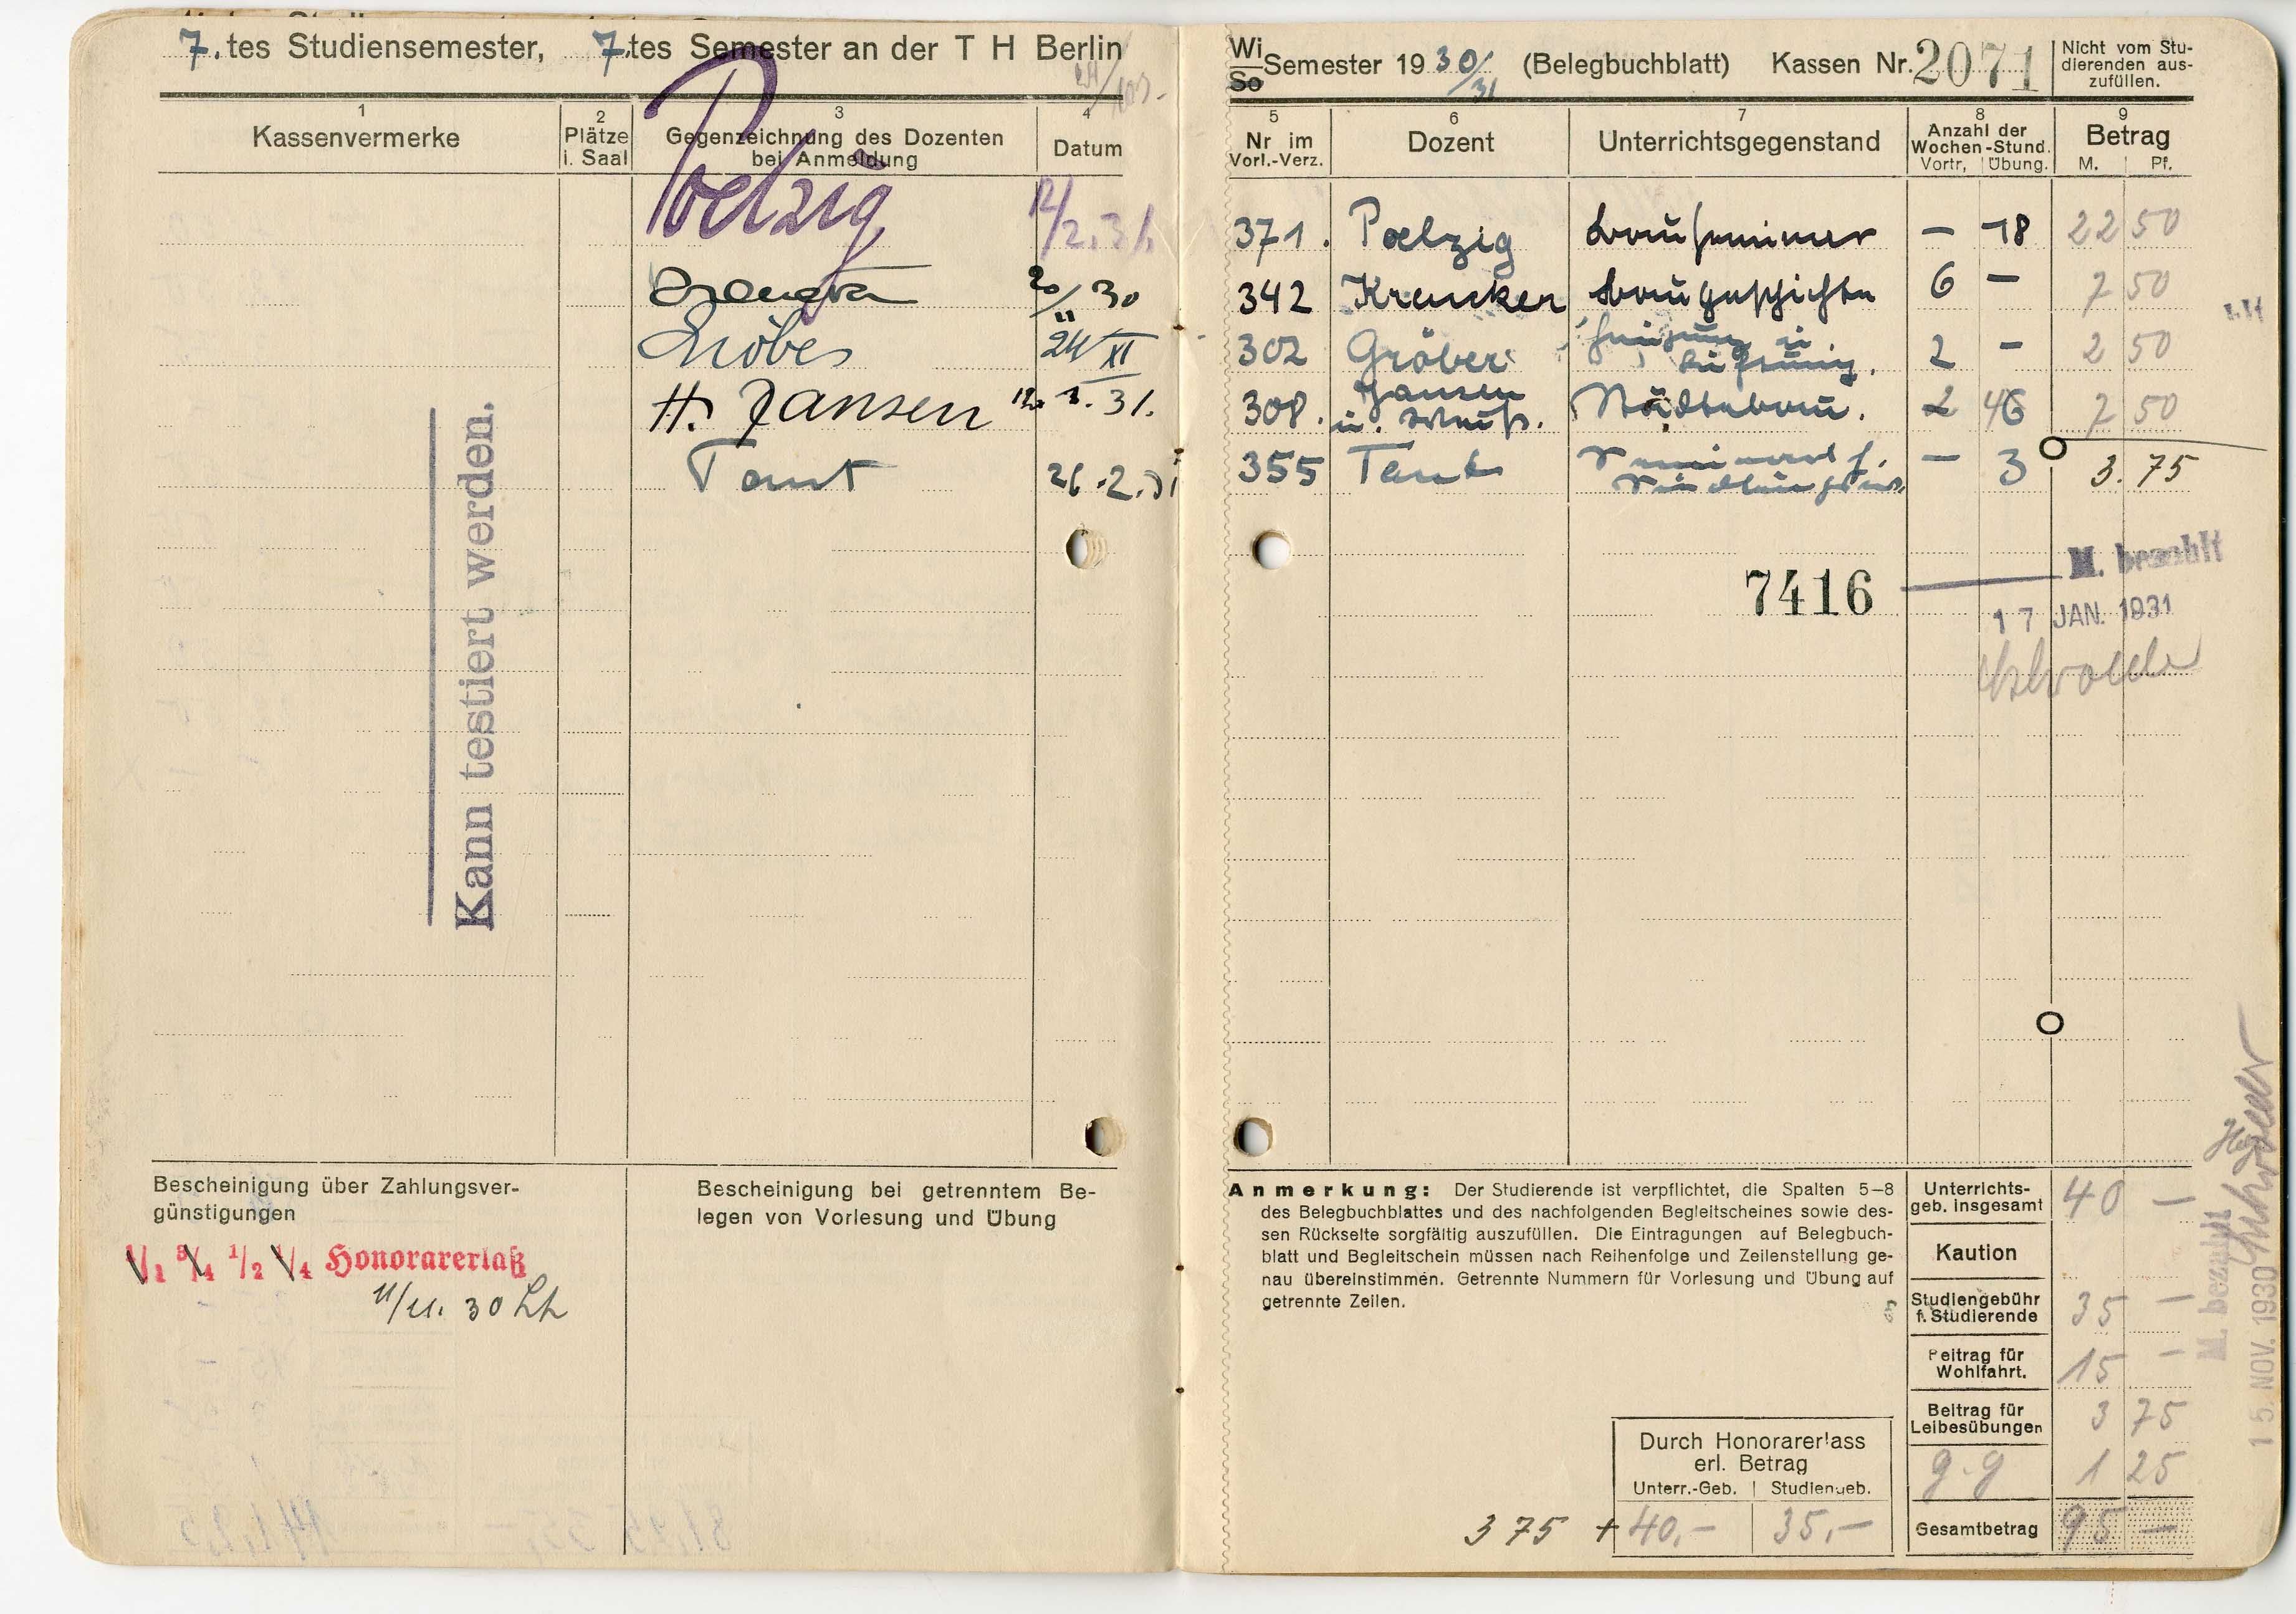 7. tes Studiensemester, 7. tes Semester an der T H Berlin
1
Kassenvermerke
2
Plätze
i. Saal
3
Gegenzeichnung des Dozenten
bei Anmeldung
4
Datum
Poelzig 12/2.31.
20/11 30
Gröber 24/XI
H. Jansen 3. 31.
Taut 26.2.31
Kann testiert werden.
Bescheinigung über Zahlungsver-
günstigungen
1/1 3/4 1/2 1/4 Honorarerlaß
11/11. 30 Lh
Bescheinigung bei getrenntem Be-
legen von Vorlesung und Übung
Wi
So
Semester 19 30/31 (Belegbuchblatt) Kassen Nr. 2071
Nicht vom Stu-
dierenden aus-
zufüllen.
5
Nr im
Vorl.-Verz.
6
Dozent
7
Unterrichtsgegenstand
8
Anzahl der
Wochen-Stund.
Vortr, Übung.
9
Betrag
M. Pf.
371. Poelzig Bauseminar — 18 22 50
342 Krencker Baugeschichte 6 — 7 50
302 Gröber Heizung u. Lüftung. 2 — 2 50
308. Jansen u. Städtebau. 2 7 50
355 Taut Seminar f. — 3 3. 75
7416
M. bezahlt
17 JAN. 1931
Anmerkung: Der Studierende ist verpflichtet, die Spalten 5–8
des Belegbuchblattes und des nachfolgenden Begleitscheines sowie des-
sen Rückseite sorgfältig auszufüllen. Die Eintragungen auf Belegbuch-
blatt und Begleitschein müssen nach Reihenfolge und Zeilenstellung ge-
nau übereinstimmen. Getrennte Nummern für Vorlesung und Übung auf
getrennte Zeilen.
Unterrichts-
geb. insgesamt 40 —
Kaution
Studiengebühr
f. Studierende 35 —
Beitrag für
Wohlfahrt. 15 —
Beitrag für
Leibesübungen 3 75
g.g 1 25
Gesamtbetrag 95 —
Durch Honorarerlass
erl. Betrag
Unterr.-Geb. Studiengeb.
3 75 + 40,— 35,—
M. bezahlt
15. NOV. 1930